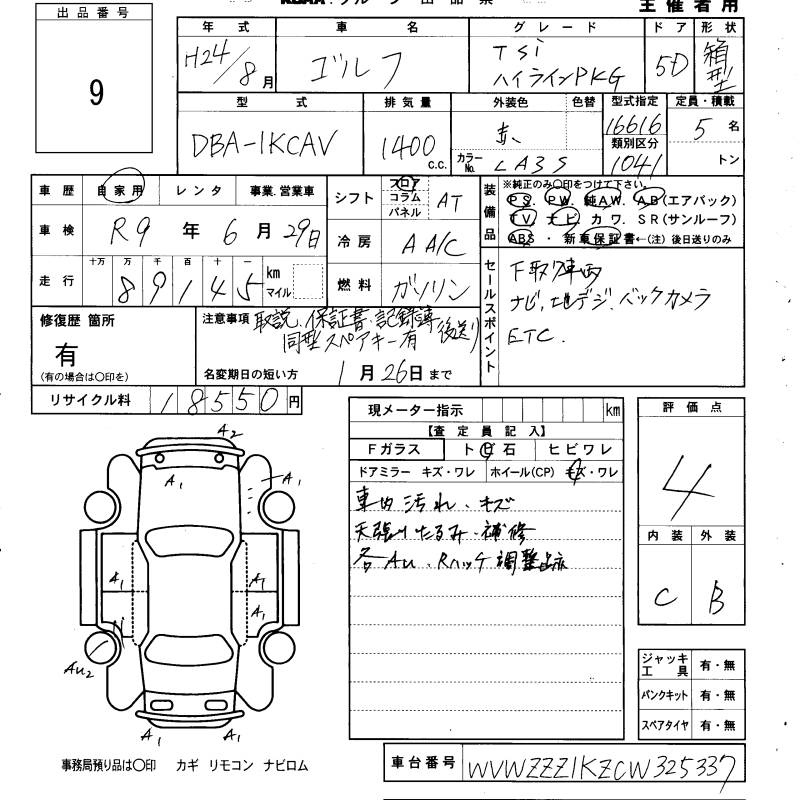 主催者用
出品番号
9
年式 車名 グレード ドア 形状
H24/8月 ゴルフ TSi ハイラインPKG 5D 箱型
型式 排気量 外装色 色替 型式指定 定員・積載
DBA-1KCAV 1400c.c. 赤 16616 5名
類別区分
カラーNo. LA3S 1041 トン
車歴 自家用 レンタ 事業.営業車
車検 R9年6月29日
走行 十万 万 千 百 十 一
89145 km マイル
シフト フロア コラム パネル AT
冷房 AA/C
燃料 ガソリン
装備品
※純正のみ〇印をつけて下さい。
PS. PW. 純AW. AB(エアバック)
TV ナビ カワ. SR(サンルーフ)
ABS ・ 新車保証書←(注) 後日送りのみ
セールスポイント
下取車両
ナビ,地デジ,バックカメラ
ETC.
修復歴 箇所
有
(有の場合は〇印を)
注意事項 取説、保証書、記録簿
同型スペアキー有 後送り
名変期日の短い方 1月26日まで
リサイクル料 18550円
現メーター指示 km
【査定員記入】
Fガラス トビ石 ヒビワレ
ドアミラー キズ・ワレ ホイール(CP) キズ・ワレ
車内汚れ・キズ
天張りたるみ・補修
各AU、Rハッチ調整
評価点
4
内装 外装
C B
A2
A1 A1
A1 A1
A1
AU2
A1 A1
ジャッキ工具 有・無
パンクキット 有・無
スペアタイヤ 有・無
事務局預り品は〇印 カギ リモコン ナビロム
車台番号 WVWZZZ1KZCW325337